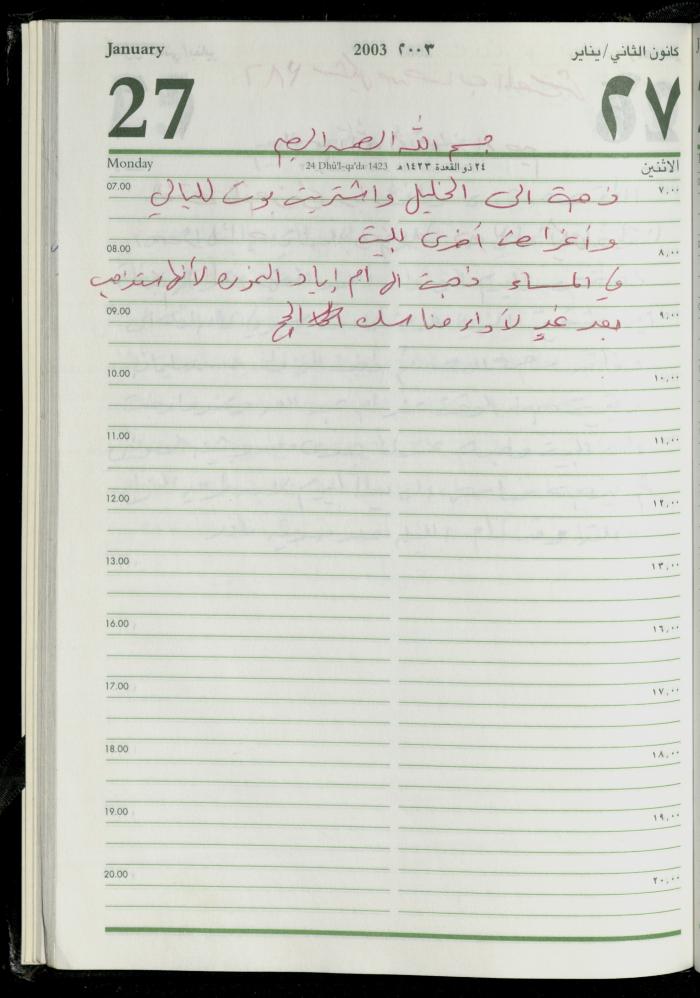 January 2003 ٢٠٠٣ كانون الثاني/يناير
27 ٢٧
بسم الله الرحمن الرحيم
Monday 24 Dhū'l-qa'da 1423 ٢٤ ذو القعدة ١٤٢٣ هـ الاثنين
07.00 ذهبت الى الخليل واشتريت بوت لليالي ٧,٠٠
وأغراض أخرى للبيت
08.00 ٨,٠٠
في المساء ذهبت الى ام إياد لأنها ستذهب
09.00 ٩,٠٠
بعد غدٍ لأداء مناسك الحج
10.00 ١٠,٠٠
11.00 ١١,٠٠
12.00 ١٢,٠٠
13.00 ١٣,٠٠
16.00 ١٦,٠٠
17.00 ١٧,٠٠
18.00 ١٨,٠٠
19.00 ١٩,٠٠
20.00 ٢٠,٠٠